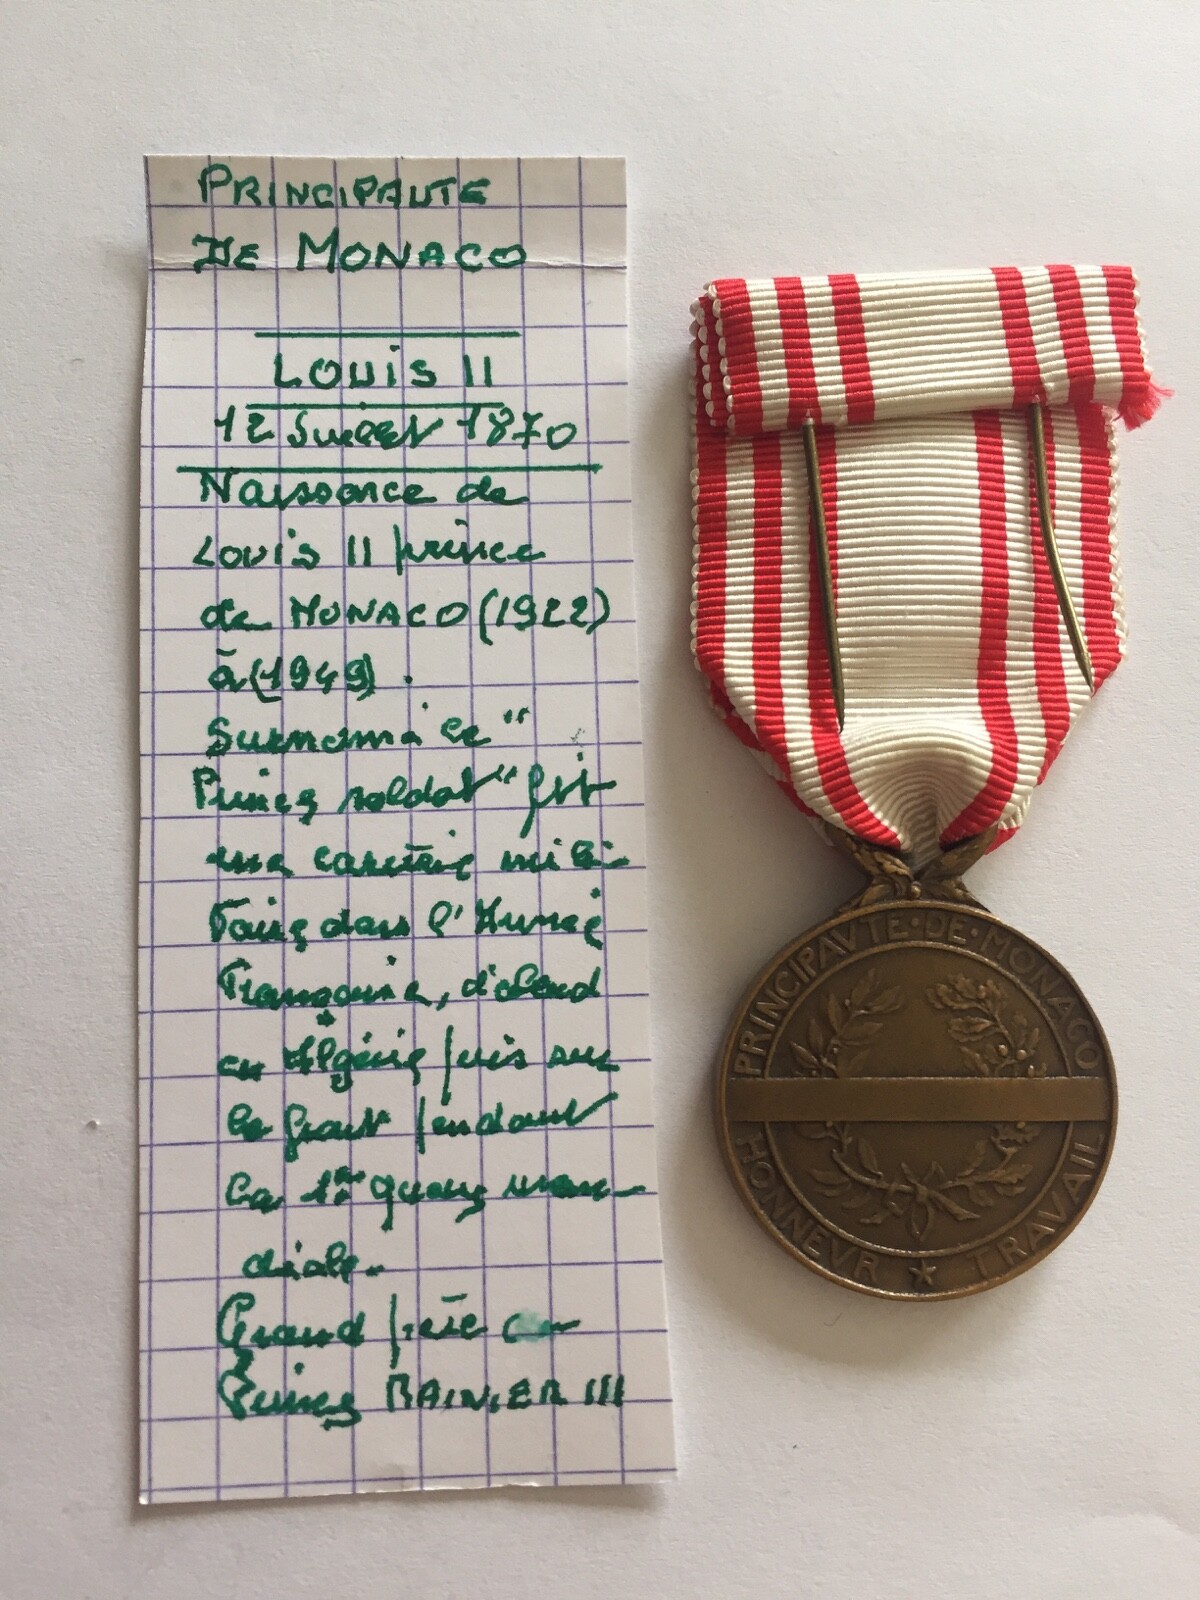 PRINCIPAUTE
DE MONACO
LOUIS II
12 Juillet 1870
Naissance de
Louis II prince
de MONACO (1922)
à (1949).
Surnommé le "
Prince soldat" fit
une carrière mili-
taire dans l'Armée
Française, d'abord
en Algérie puis sur
le front pendant
la 1ère guerre mon-
diale.
Grand père
Prince RAINIER III
PRINCIPAVTE·DE·MONACO
HONNEVR ★ TRAVAIL